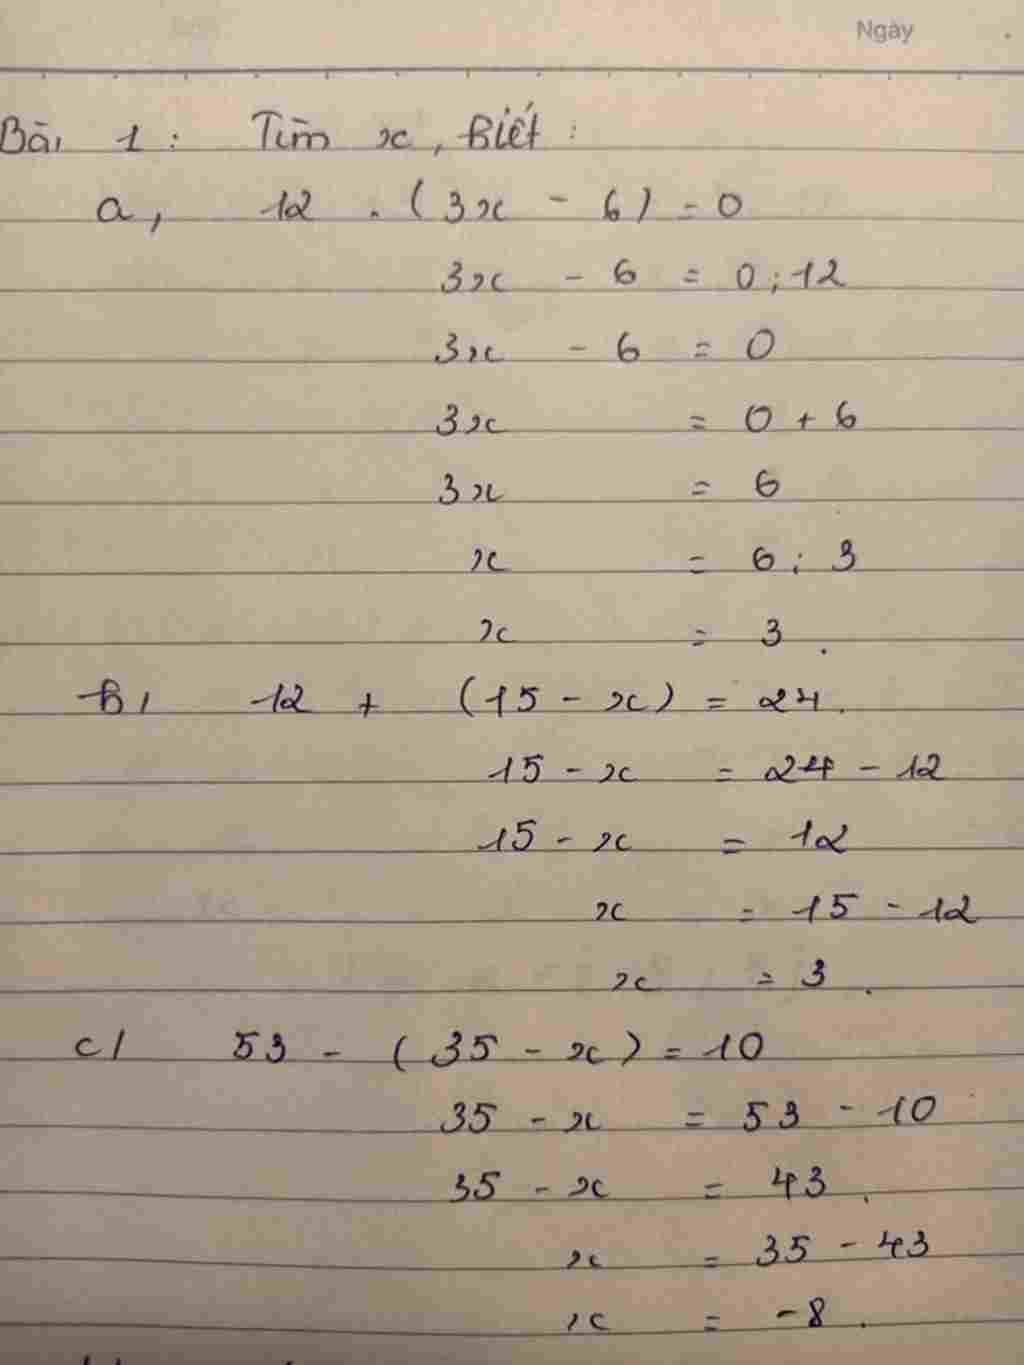 Ngày
Bài 1 : Tìm x, biết :
a, 12 . (3x - 6) = 0
3x - 6 = 0 : 12
3x - 6 = 0
3x = 0 + 6
3x = 6
x = 6 : 3
x = 3 .
b, 12 + (15 - x) = 24 .
15 - x = 24 - 12
15 - x = 12
x = 15 - 12
x = 3 .
c/ 53 - (35 - x) = 10
35 - x = 53 - 10
35 - x = 43 .
x = 35 - 43
x = -8 .